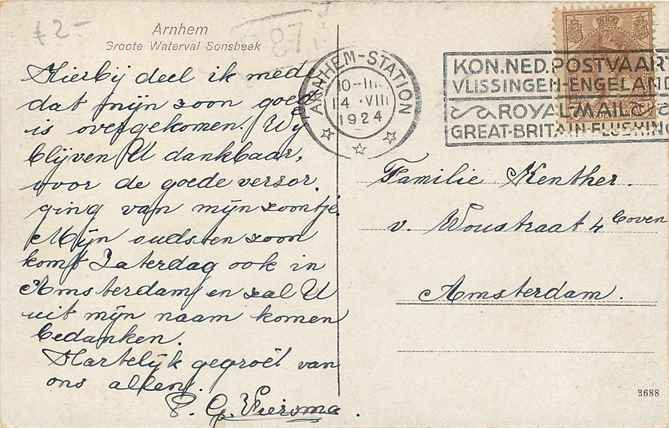 £2-
Arnhem
Groote Waterval Sonsbeek
Hierbij deel ik mede
dat mijn zoon goed
is overgekomen. Wij
blijven U dankbaar,
voor de goede verzor
ging van mijn zoontje
Mijn oudsten zoon
komt Zaterdag ook in
Amsterdam en zal U
uit mijn naam komen
bedanken.
Hartelijk gegroet van
ons allen,
P. G. Wiersma.
ARNHEM-STATION
14 VIII
1924
KON. NED. POSTVAART
VLISSINGEN-ENGELAND
ROYAL MAIL
GREAT-BRITAIN-FLUSHING
Familie Kenther.
v. Woustraat 4 boven
Amsterdam.
3688